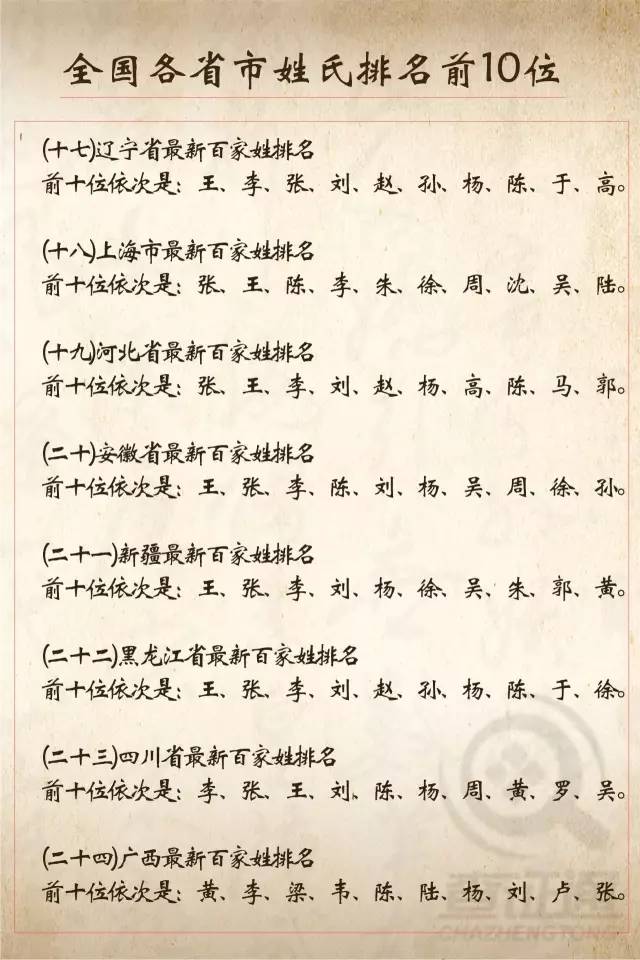 全国各省市姓氏排名前10位
(十七)辽宁省最新百家姓排名
前十位依次是：王、李、张、刘、赵、孙、杨、陈、于、高。
(十八)上海市最新百家姓排名
前十位依次是：张、王、陈、李、朱、徐、周、沈、吴、陆。
(十九)河北省最新百家姓排名
前十位依次是：张、王、李、刘、赵、杨、高、陈、马、郭。
(二十)安徽省最新百家姓排名
前十位依次是：王、张、李、陈、刘、杨、吴、周、徐、孙。
(二十一)新疆最新百家姓排名
前十位依次是：王、张、李、刘、杨、徐、吴、朱、郭、黄。
(二十二)黑龙江省最新百家姓排名
前十位依次是：王、张、李、刘、赵、孙、杨、陈、于、徐。
(二十三)四川省最新百家姓排名
前十位依次是：李、张、王、刘、陈、杨、周、黄、罗、吴。
(二十四)广西最新百家姓排名
前十位依次是：黄、李、梁、韦、陈、陆、杨、刘、卢、张。
CHAZHENGTONG